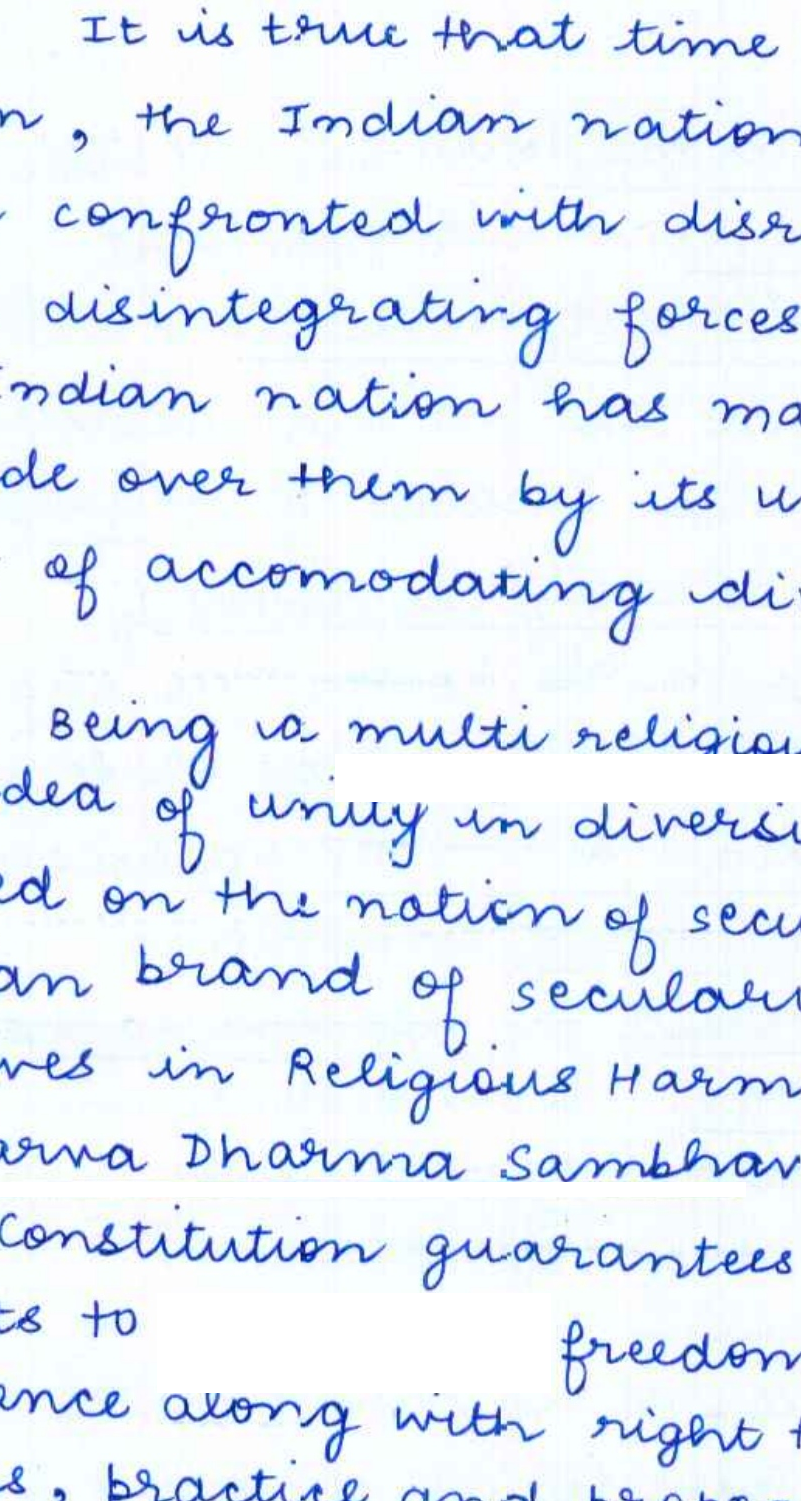 It is true that time
n, the Indian nation
confronted with disr
disintegrating forces
Indian nation has ma
de over them by its u
of accomodating di
Being a multi religiou
dea of unity in diversi
ed on the notion of secu
an brand of seculari
ves in Religious Harm
arva Dharma Sambhav
Constitution guarantees
ts to freedom
ence along with right t
s, practice and